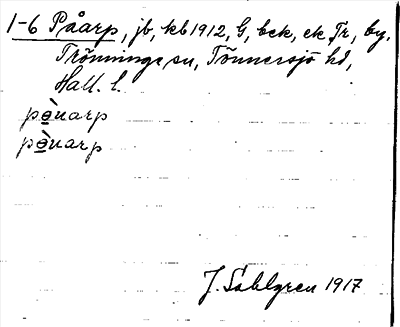 1-6 Påarp, jb, kb 1912, G, bek, ek Tr, by,
Trönninge sn, Tönnersjö hd,
Hall. l.
pò̱uarp
pò̱uarp
J. Sahlgren 1917